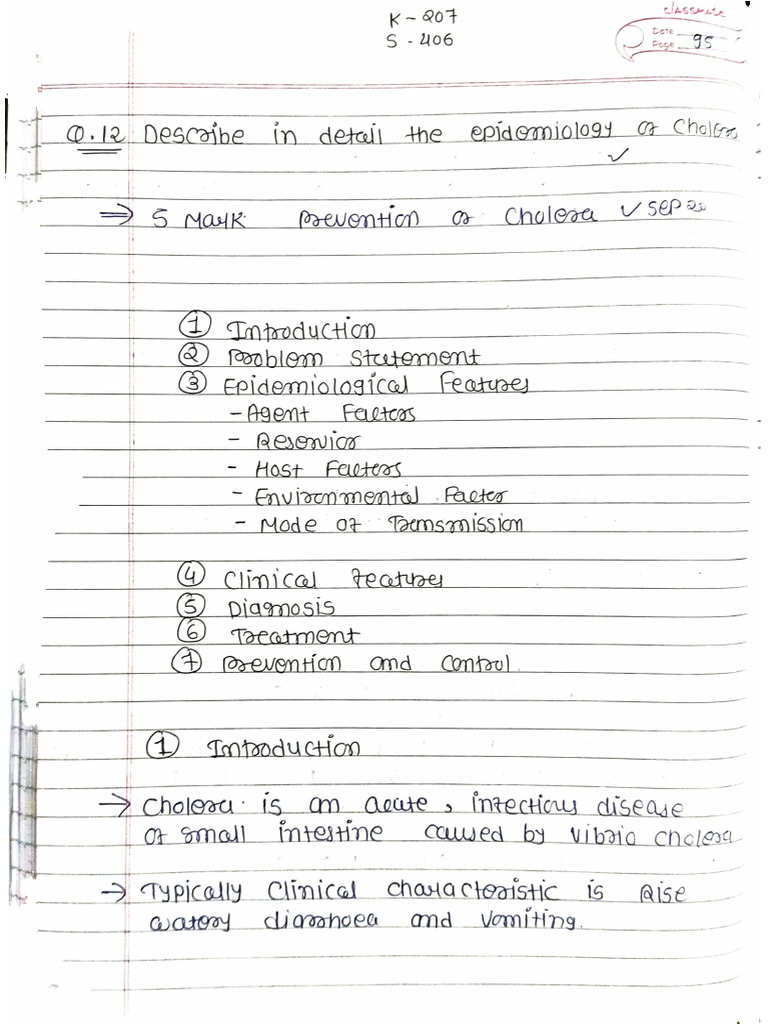 K - 207
S - 406
classmate
Date
Page 95
Q.12 Describe in detail the epidemiology of Cholera
⇒ 5 Mark Prevention of Cholera ✓ SEP 20
① Introduction
② Problem Statement
③ Epidemiological Features
- Agent Factors
- Reservior
- Host Factors
- Environmental Factor
- Mode of Transmission
④ Clinical Features
⑤ Diagnosis
⑥ Treatment
⑦ Prevention and Control
① Introduction
→ Cholera is an acute, infectious disease
of small intestine caused by Vibrio Cholera
→ Typically Clinical characteristic is Rise
watory diarrhoea and vomiting.